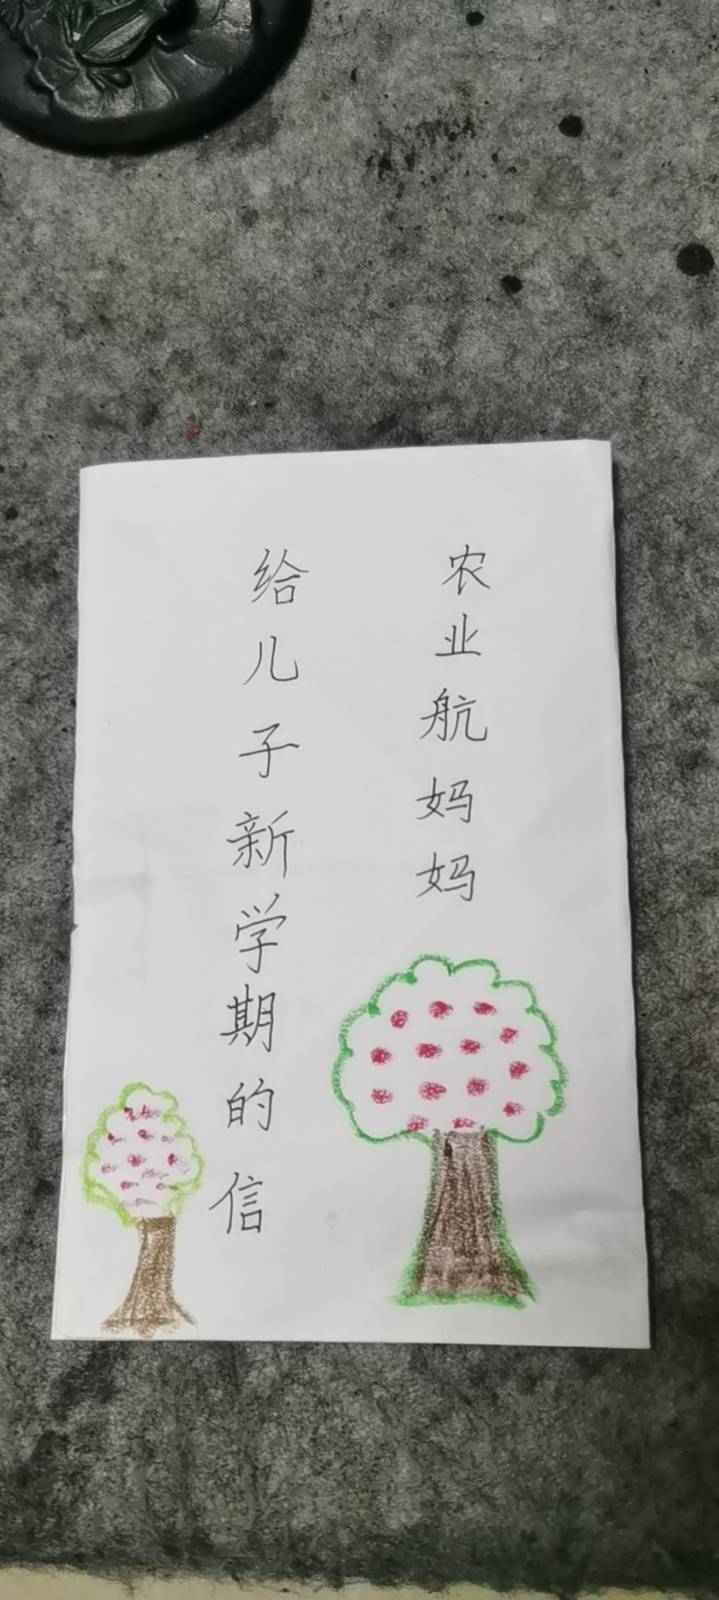 农业航妈妈
给儿子新学期的信